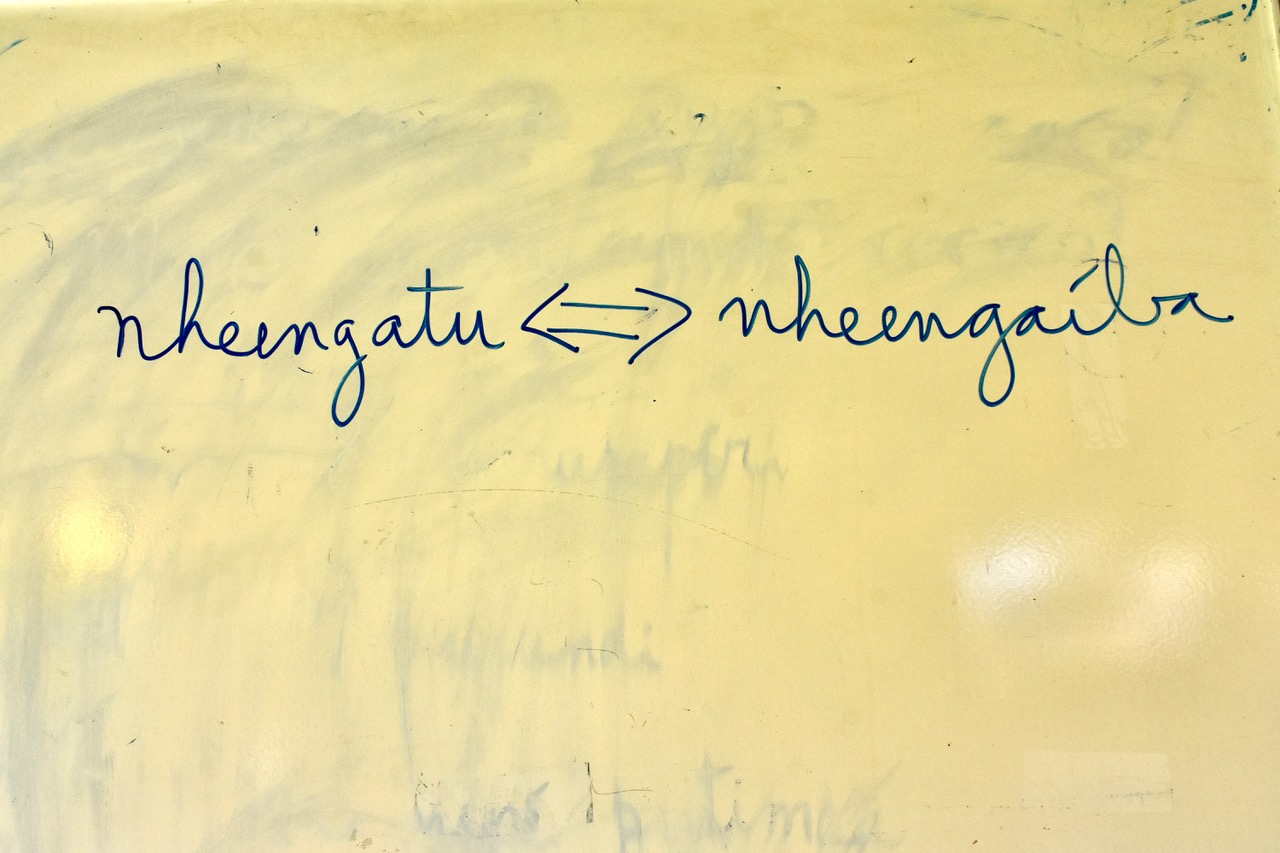 nheengatu <=> nheengaíba